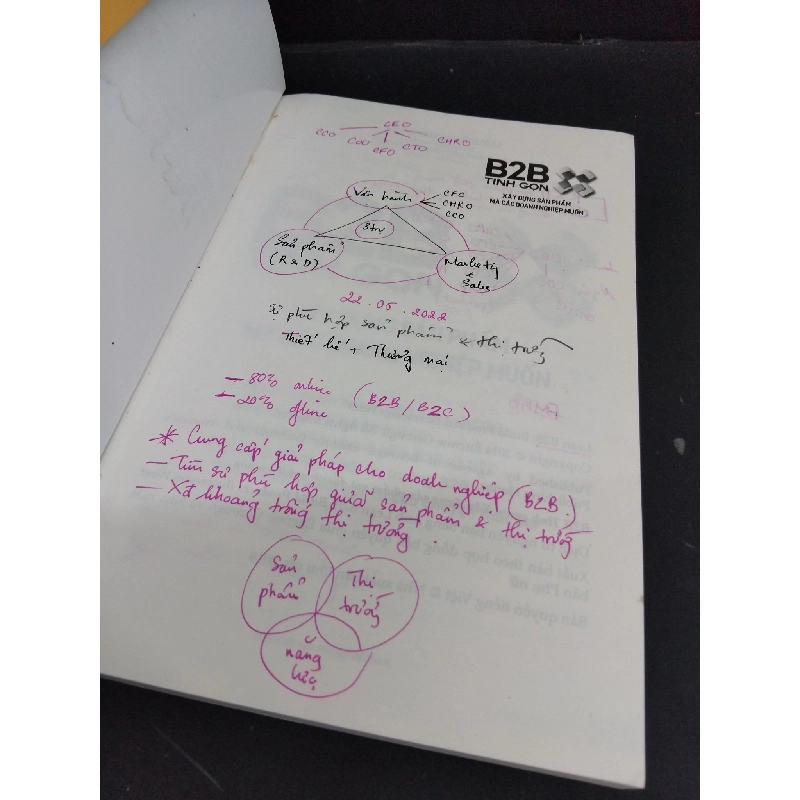 CEO
CCO
COO
CFO
CTO
CHRO
B2B
TINH GỌN
XÂY DỰNG SẢN PHẨM
MÀ CÁC DOANH NGHIỆP MUỐN
Vận hành
CFO
CHRO
CCO
Sản phẩm
(R & D)
Marketing
& Sales
22.05.2022
Sự phù hợp sản phẩm & thị trường
Thiết kế + Thương mại
- 80% online
- 20% offline
(B2B / B2C)
* Cung cấp giải pháp cho doanh nghiệp (B2B.)
- Tìm sự phù hợp giữa sản phẩm & thị trường
- Xđ khoảng trống thị trường.
Sản phẩm
Thị trường
năng lực